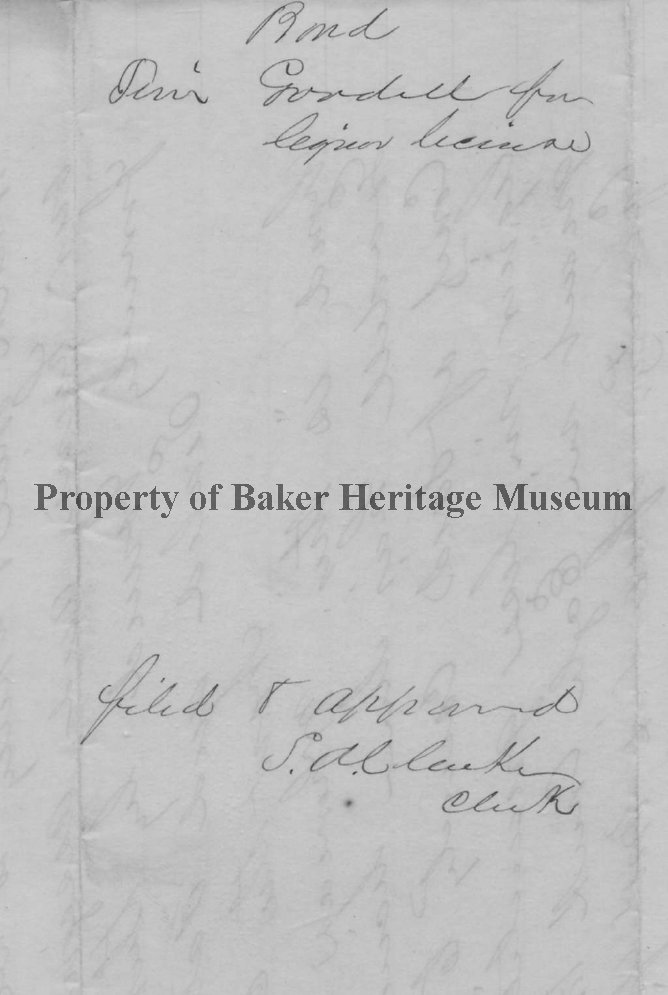 Bond
Goodell for
liquor license
Property of Baker Heritage Museum
filed & approved
S. A. Clarke
Clerk